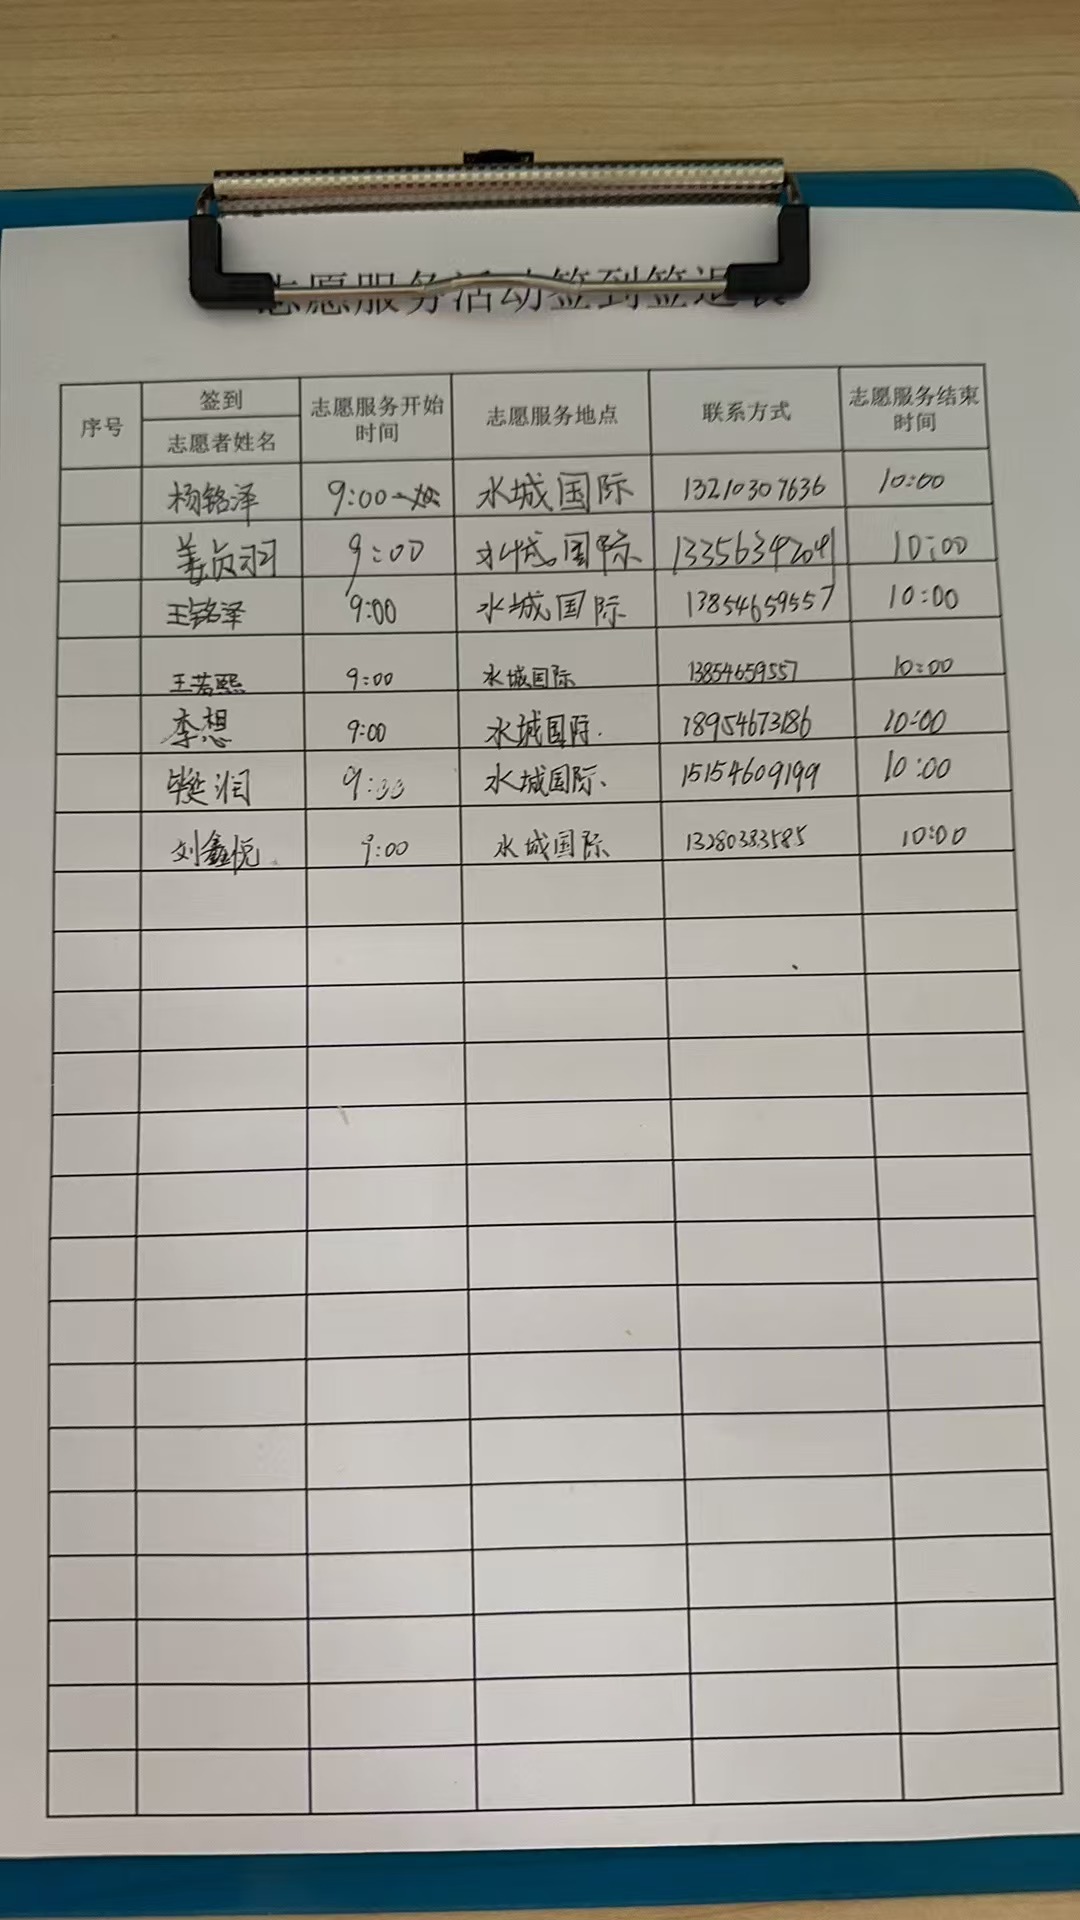 志愿服务活动签到签退表
序号 签到 志愿者姓名 志愿服务开始时间 志愿服务地点 联系方式 志愿服务结束时间
杨铭泽 9:00 水城国际 13210307636 10:00
姜贞羽 9:00 水城国际 13356349204 10:00
王铭泽 9:00 水城国际 13854659557 10:00
王若熙 9:00 水城国际 13854659557 10:00
李想 9:00 水城国际. 18954673186 10:00
润 水城国际、 15154609199 10:00
刘鑫悦 9:00 水城国际 13280383585 10:00